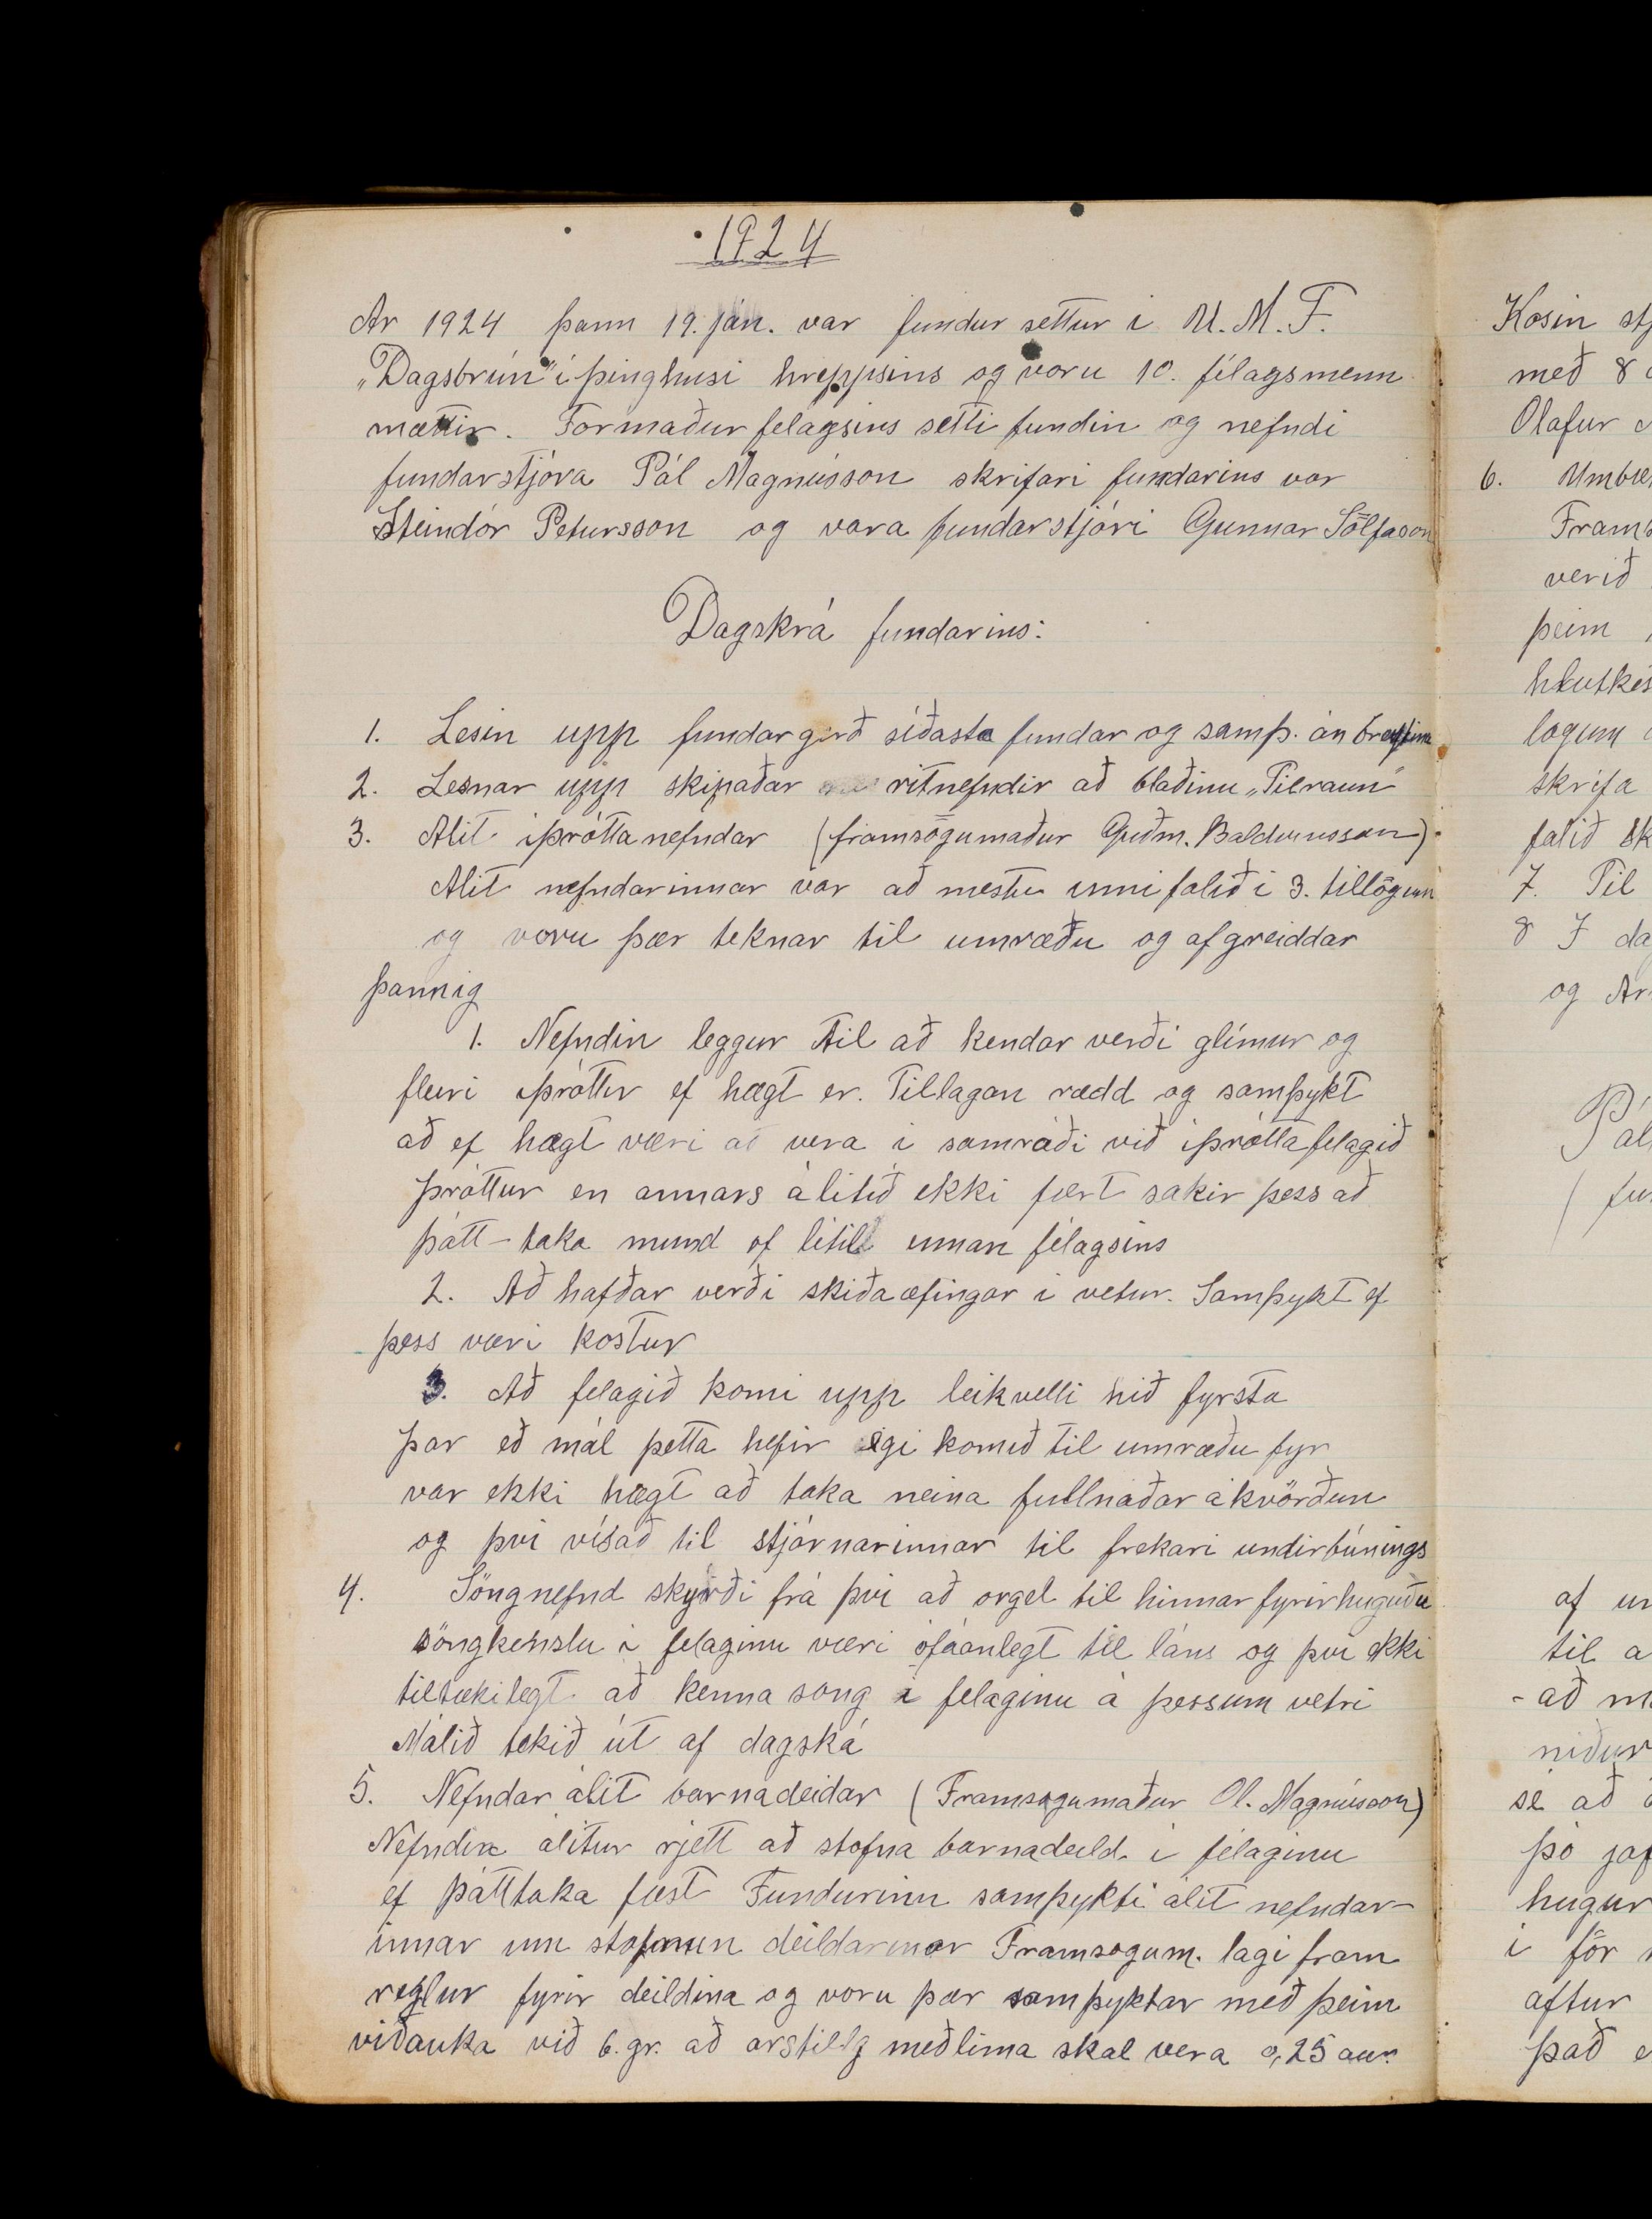 1924
Ár 1924 þann 19. ján. var fundur settur i U. M. F.
„Dagsbrún" i þinghusi hreppsins og voru 10. félagsmenn
mættir. Formaður felagsins setti fundin og nefndi
fundarstjóra Pál Magnússon skrifari fundarins var
Steindór Petursson og vara fundarstjóri Gunnar Sölfason
Dagskrá fundarins:
1. Lesin upp fundargerð síðasta fundar og samþ. án
2. Lesnar upp skipaðar ritnefndir að blaðinu „Tilraun"
3. Álit iþrótta nefndar (framsögumaður Guðm. Baldvinsson)
Álit nefndarinnar var að mestu innifalið i 3. tillögum
og voru þær teknar til umræðu og afgreiddar
þannig
1. Nefndin leggur til að kendar verði glímur og
fleiri iþróttir ef hægt er. Tillagan rædd og samþykt
að ef hægt væri að vera i samráði við iþróttafelagið
þróttur en annars álitið ekki fært sakir þess að
þátt-taka mund of lítil innan félagsins
2. Að hafðar verði skiðaæfingar i vetur. Samþykt ef
þess væri kostur
3. Að felagið komi upp leikvelli hið fyrsta
þar eð mál þetta hefir eigi komið til umræðu fyr
var ekki hægt að taka neina fullnaðar ákvörðun
og því vísað til stjórnarinnar til frekari undirbúnings
4. Söngnefnd skýrði frá því að orgel til hinnar fyrirhuguðu
söngkenslu i felaginu væri ófáanlegt til láns og því ekki
tiltækilegt að kenna song i felaginu á þessum vetri
Málið tekið út af dagská
5. Nefndar álit barnadeidar (Framsogumaður Ol. Magnússon)
Nefndin álitur rjett að stofna barnadeild i félaginu
ef þátttaka fæst Fundurinn samþykti álit nefndar-
innar um stofnun deildarinnar Framsogum. lagi fram
reglur fyrir deildina og voru þær samþyktar með þeim
viðauka við 6. gr. að arstillg meðlima skal vera 0,25 aur.
Kosin
með 8
Olafur
6.
verið
þeim
logum
skrifa
falið
7. Til
8
og
Pál
af
til
- að
niður
sé að
þó
hugur
i för
aftur
það